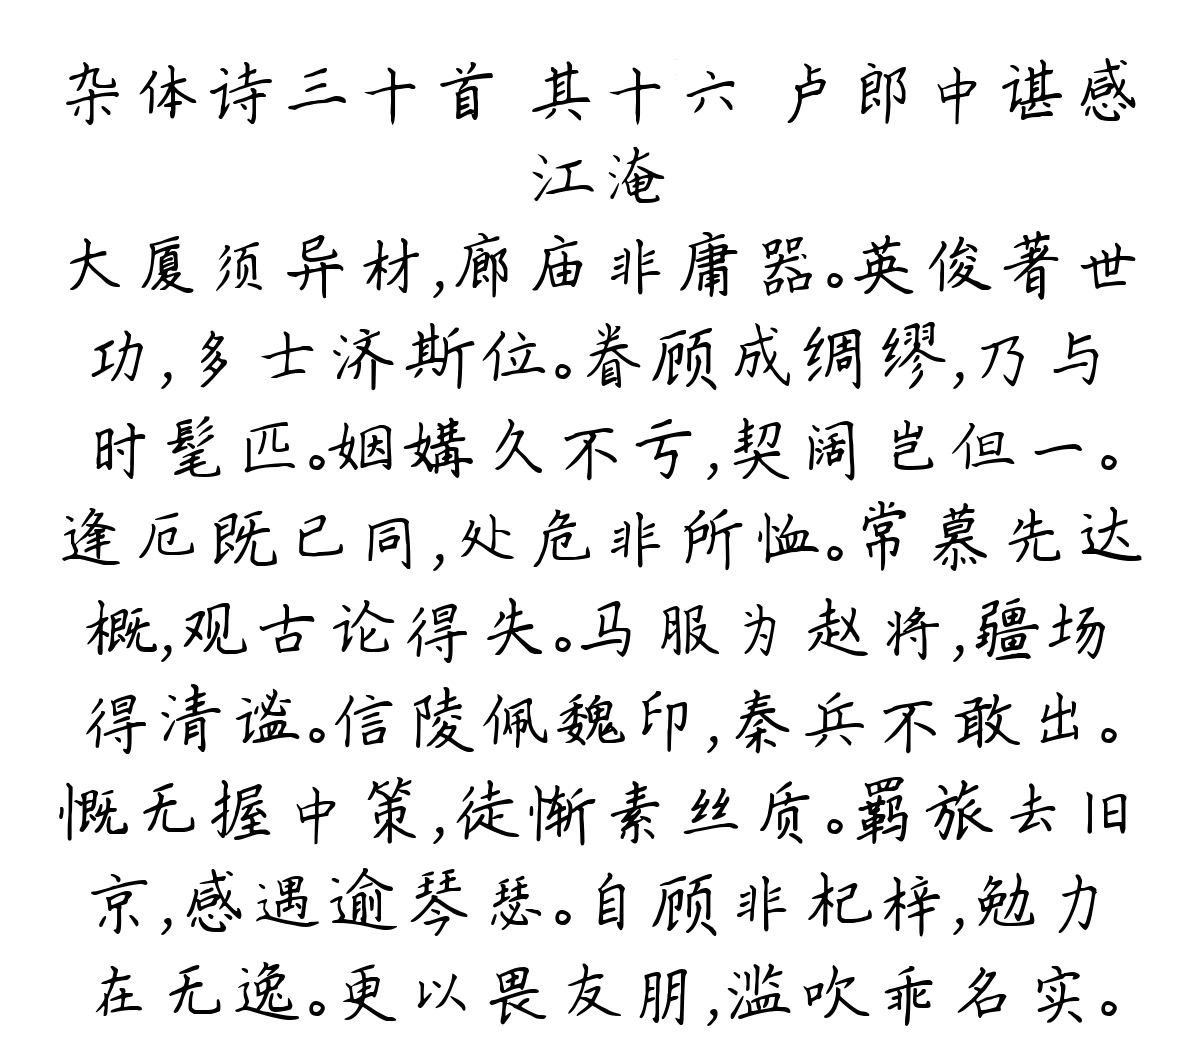 杂体诗三十首 其十六 卢郎中谌感
江淹
大厦须异材,廊庙非庸器。英俊著世
功,多士济斯位。眷顾成绸缪,乃与
时髦匹。姻媾久不亏,契阔岂但一。
逢厄既已同,处危非所恤。常慕先达
概,观古论得失。马服为赵将,疆场
得清谧。信陵佩魏印,秦兵不敢出。
慨无握中策,徒惭素丝质。羁旅去旧
京,感遇逾琴瑟。自顾非杞梓,勉力
在无逸。更以畏友朋,滥吹乖名实。